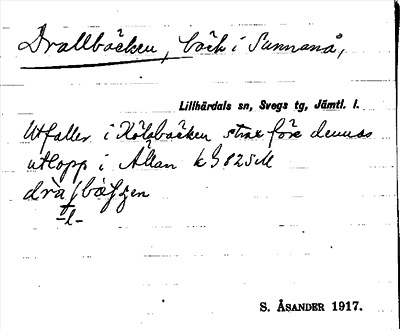 Drallbäcken, bäck i Sunnanå,
Lillhärdals sn, Svegs tg, Jämtl. l.
Utfaller i Kölsbäcken strax före dennas
utlopp i Ällan
-l-
S. ÅSANDER 1917.